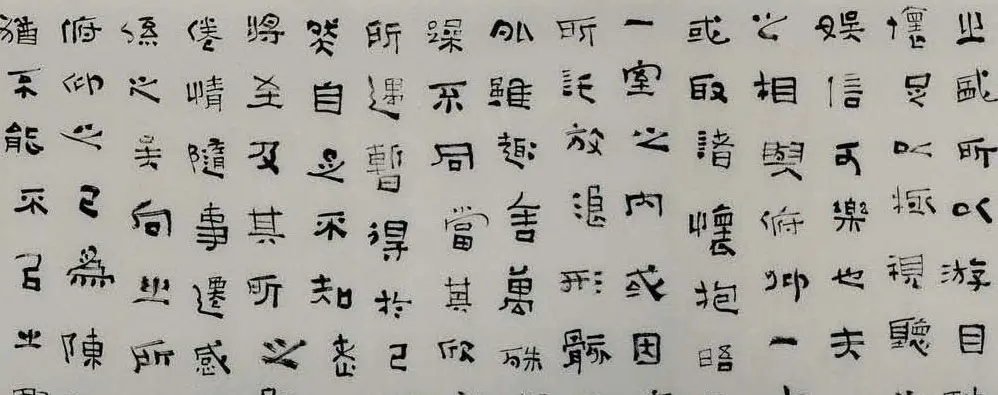 之盛所以游目
懷足以極視聽
娛信可樂也夫
之相與俯仰一
或取諸懷抱晤
一室之內或因
所託放浪形骸
外雖趣舍萬殊
躁不同當其欣
所遇暫得於己
然自足不知老
將至及其所之
倦情隨事遷感
係之矣向之所
俯仰之已為陳
猶不能不以之